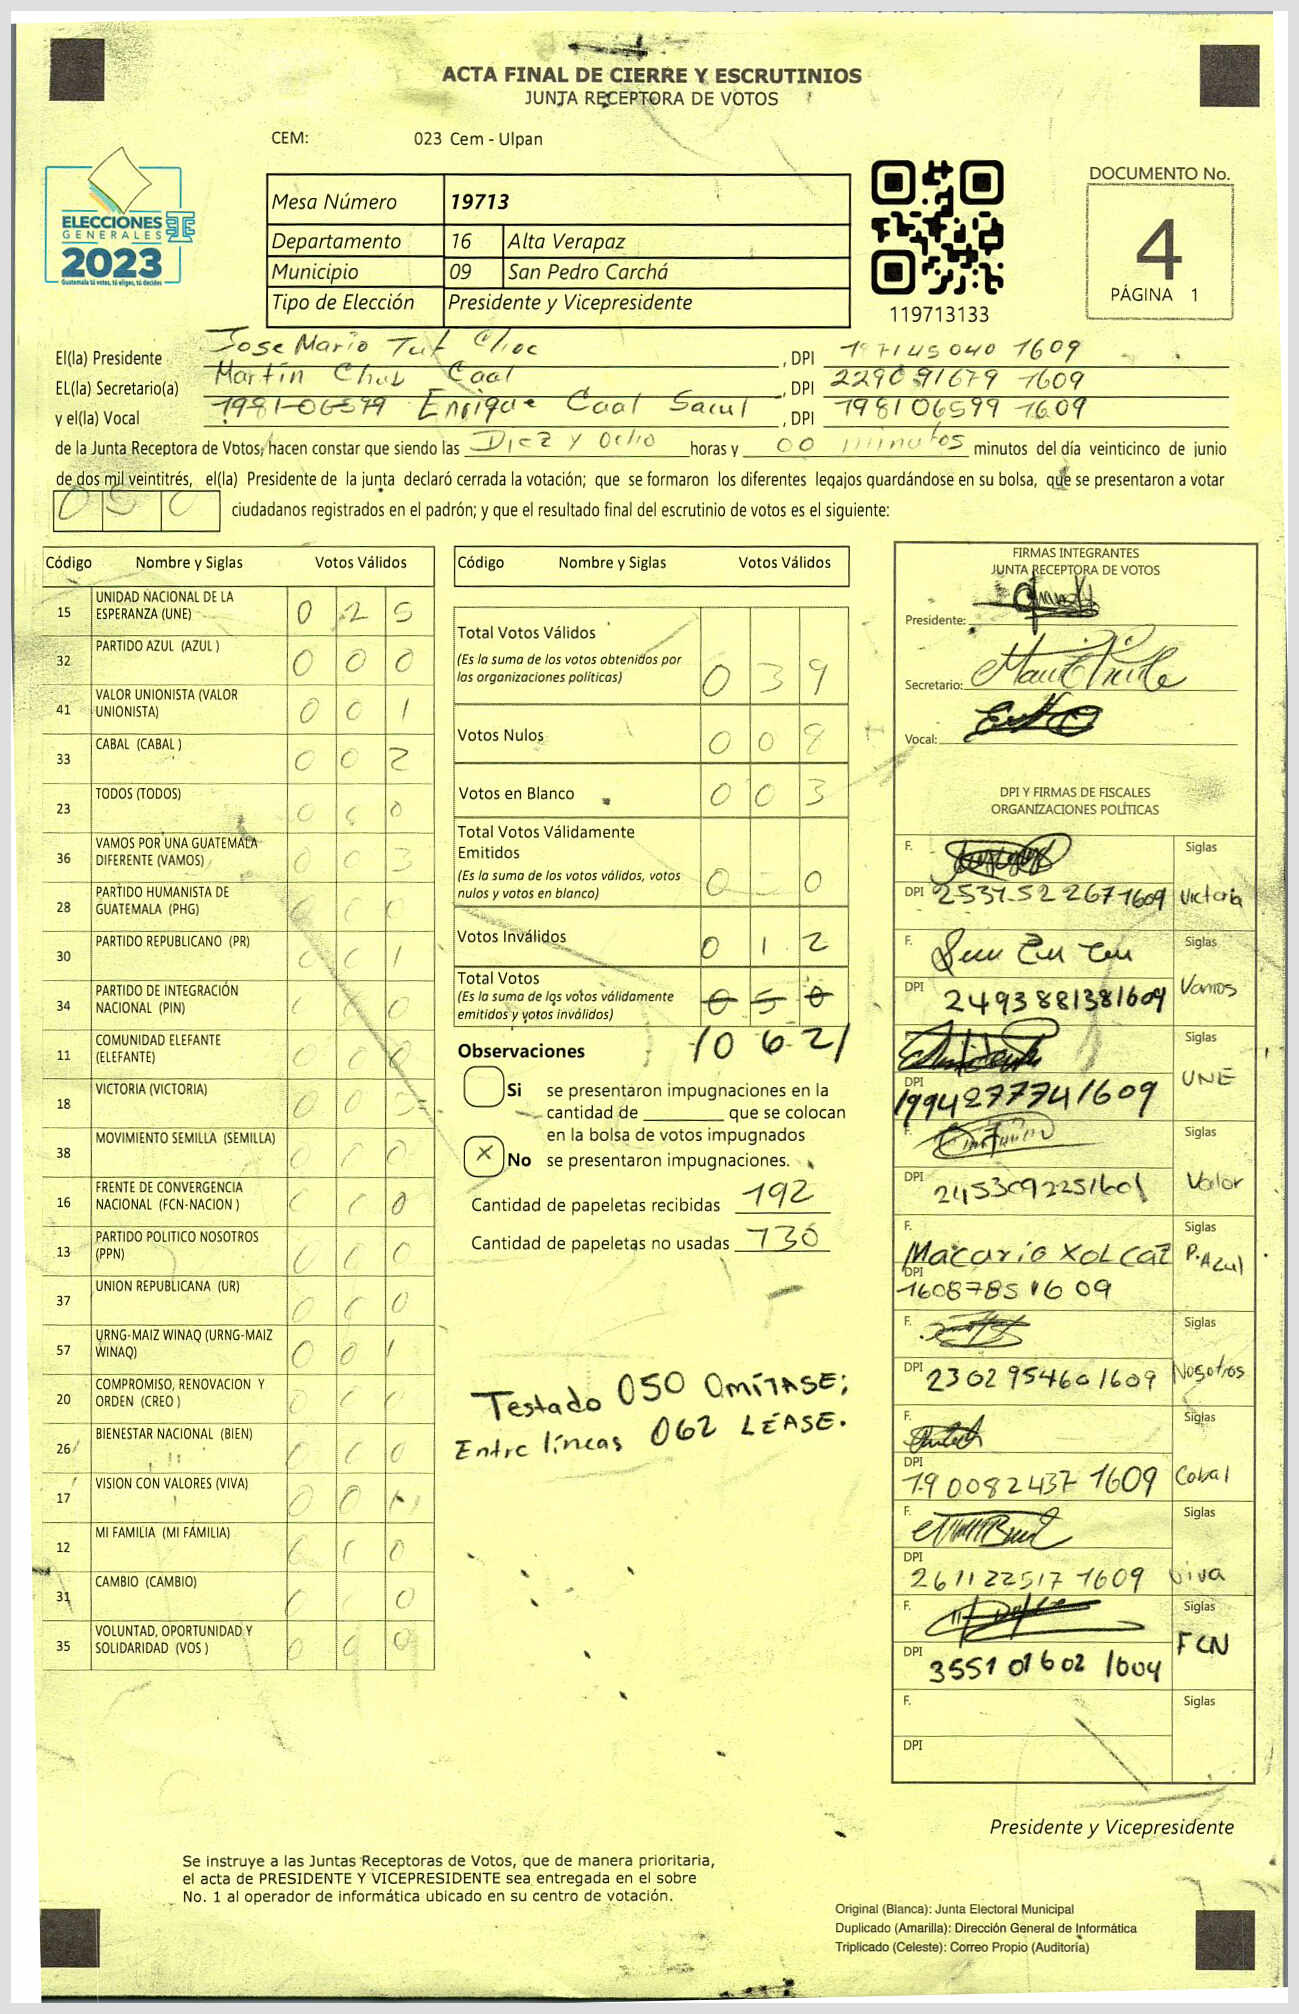 ACTA FINAL DE CIERRE Y ESCRUTINIOS
JUNTA RECEPTORA DE VOTOS
CEM: 023 Cem - Ulpan
ELECCIONES
GENERALES
2023
Guatemala tú votas, tú eliges, tú decides
Mesa Número 19713
Departamento 16 Alta Verapaz
Municipio 09 San Pedro Carchá
Tipo de Elección Presidente y Vicepresidente
119713133
DOCUMENTO No.
4
PÁGINA 1
El(la) Presidente Jose Mario Tut Choc, DPI 197145040 1609
EL(la) Secretario(a) Martín Chub Caal, DPI 229091679 1609
y el(la) Vocal 1981-06599 Enrique Caal Sacul, DPI 198106599 1609
de la Junta Receptora de Votos, hacen constar que siendo las Diez y Ocho horas y 00 minutos minutos del día veinticinco de junio
de dos mil veintitrés, el(la) Presidente de la junta declaró cerrada la votación; que se formaron los diferentes legajos guardándose en su bolsa, que se presentaron a votar
050 ciudadanos registrados en el padrón; y que el resultado final del escrutinio de votos es el siguiente:
Código Nombre y Siglas Votos Válidos
15 UNIDAD NACIONAL DE LA ESPERANZA (UNE) 0 2 5
32 PARTIDO AZUL (AZUL ) 0 0 0
41 VALOR UNIONISTA (VALOR UNIONISTA) 0 0 1
33 CABAL (CABAL ) 0 0 2
23 TODOS (TODOS) 0 0 0
36 VAMOS POR UNA GUATEMALA DIFERENTE (VAMOS) 0 0 3
28 PARTIDO HUMANISTA DE GUATEMALA (PHG) 0 0 0
30 PARTIDO REPUBLICANO (PR) 0 0 1
34 PARTIDO DE INTEGRACIÓN NACIONAL (PIN) 0 0 0
11 COMUNIDAD ELEFANTE (ELEFANTE) 0 0 0
18 VICTORIA (VICTORIA) 0 0
38 MOVIMIENTO SEMILLA (SEMILLA) 0 0 0
16 FRENTE DE CONVERGENCIA NACIONAL (FCN-NACION ) 0 0 0
13 PARTIDO POLITICO NOSOTROS (PPN) 0 0 0
37 UNION REPUBLICANA (UR) 0 0 0
57 URNG-MAIZ WINAQ (URNG-MAIZ WINAQ) 0 0 1
20 COMPROMISO, RENOVACION Y ORDEN (CREO ) 0 0
26 BIENESTAR NACIONAL (BIEN) 0 0 0
17 VISION CON VALORES (VIVA) 0 0
12 MI FAMILIA (MI FAMILIA) 0 0 0
31 CAMBIO (CAMBIO) 0 0
35 VOLUNTAD, OPORTUNIDAD Y SOLIDARIDAD (VOS ) 0 0 0
Código Nombre y Siglas Votos Válidos
Total Votos Válidos 0 3 9
(Es la suma de los votos obtenidos por
las organizaciones politicas)
Votos Nulos 0 0 8
Votos en Blanco 0 0 3
Total Votos Válidamente
Emitidos
(Es la suma de los votos válidos, votos
nulos y votos en blanco) 0 0
Votos Inválidos 0 1 2
Total Votos 0 5 0
(Es la suma de los votos válidamente
emitidos y votos inválidos)
/0 6 2/
Observaciones
Si se presentaron impugnaciones en la
cantidad de ________ que se colocan
en la bolsa de votos impugnados
X No se presentaron impugnaciones.
Cantidad de papeletas recibidas 192
Cantidad de papeletas no usadas 130
Testado 050 OMÍTASE;
Entre líneas 062 LÉASE.
FIRMAS INTEGRANTES
JUNTA RECEPTORA DE VOTOS
Presidente:
Secretario:
Vocal:
DPI Y FIRMAS DE FISCALES
ORGANIZACIONES POLÍTICAS
F. Siglas
DPI 2537522671609 Victoria
F. Siglas
DPI 2493881381609 Vamos
F. Siglas
DPI 1994277741609 UNE
F. Siglas
DPI 2453092251601 Valor
F. Macario XOL Caz Siglas P. Azul
DPI 160878516 09
F. Siglas
DPI 2302954601609 Nosotros
F. Siglas
DPI 190082437 1609 Cabal
F. Siglas
DPI 261122517 1609 Viva
F. Siglas
DPI 355101602 1604 FCN
F. Siglas
DPI
Presidente y Vicepresidente
Se instruye a las Juntas Receptoras de Votos, que de manera prioritaria,
el acta de PRESIDENTE Y VICEPRESIDENTE sea entregada en el sobre
No. 1 al operador de informática ubicado en su centro de votación.
Original (Blanca): Junta Electoral Municipal
Duplicado (Amarilla): Dirección General de Informática
Triplicado (Celeste): Correo Propio (Auditoría)